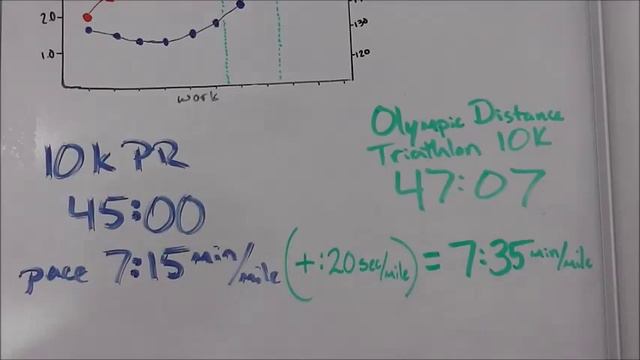 2.0
1.0
130
120
work
10k PR
45:00
pace 7:15 min/mile (+:20 sec/mile) = 7:35 min/mile
Olympic Distance
Triathlon 10K
47:07